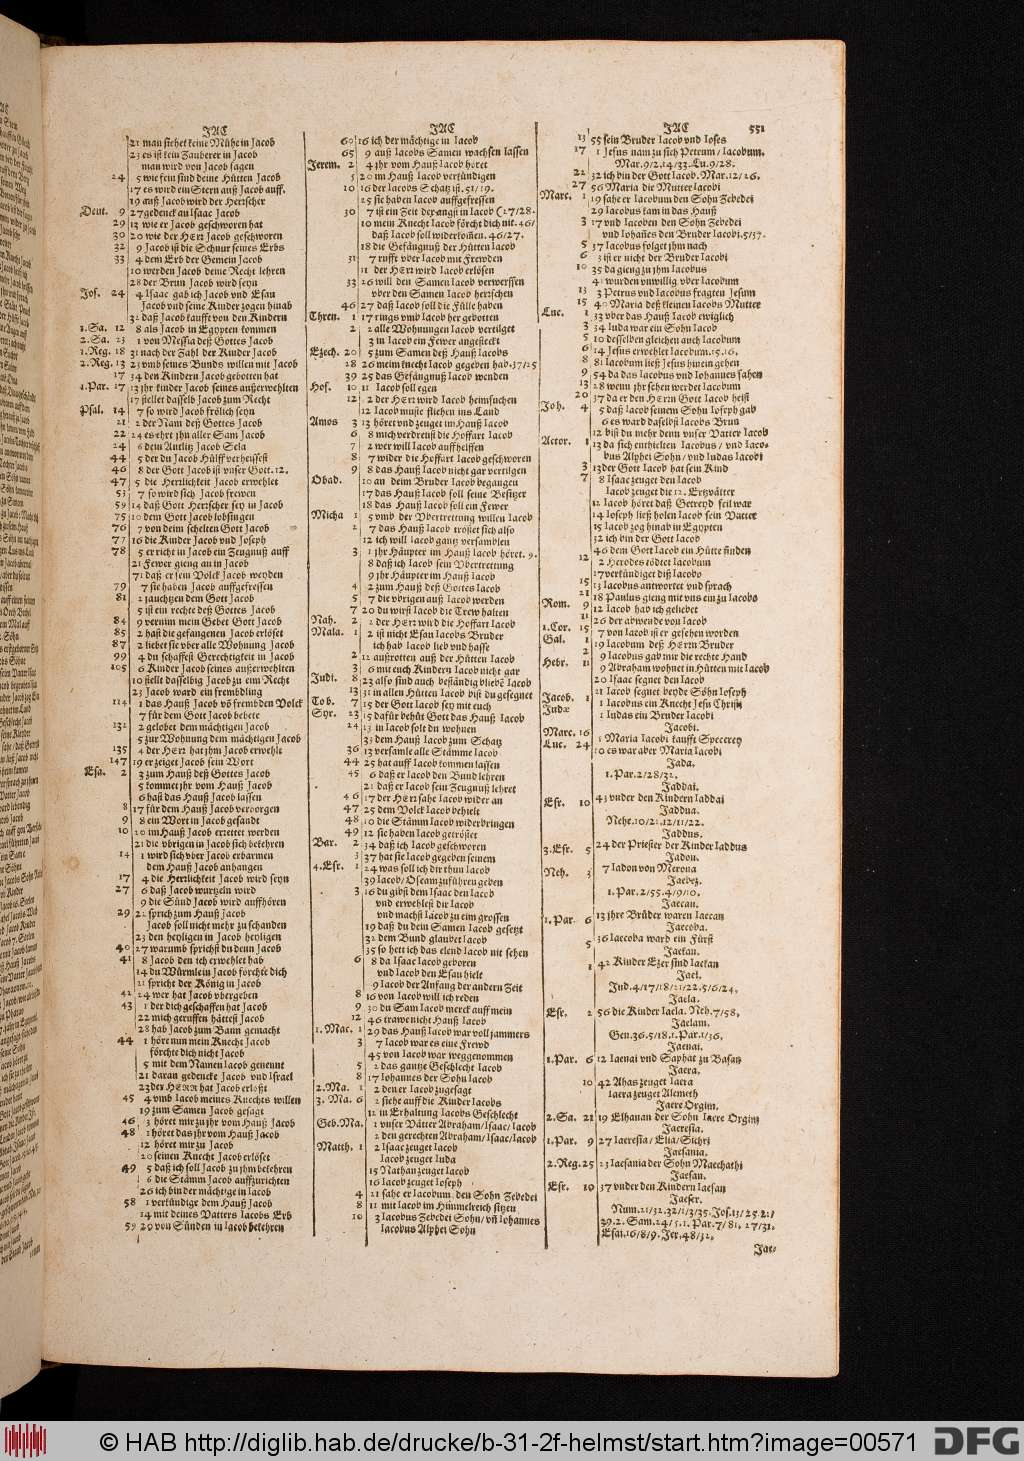 JAC
21 man siehet keine Mühe in Jacob
23 es ist kein Zauberer in Jacob
man wird von Jacob sagen
24 5 wie fein sind deine Hütten Jacob
17 es wird ein Stern auß Jacob auff.
19 auß Jacob wird der Herrscher
Deut. 9 27 gedenck an Isaac Jacob
29 13 wie er Jacob geschworen hat
30 20 wie der HErr Jacob geschworen
32 9 Jacob ist die Schnur seines Erbs
33 4 dem Erb der Gemein Jacob
10 werden Jacob deine Recht lehren
28 der Brun Jacob wird seyn
Jos. 24 4 Isaac gab ich Jacob vnd Esau
Jacob vnd seine Kinder zogen hinab
32 daß Jacob kauffte von den Kindern
1.Sa. 12 8 als Jacob in Egypten kommen
2.Sa. 23 1 von Messia deß Gottes Jacob
1.Reg. 18 31 nach der Zahl der Kinder Jacob
2.Reg. 13 23 vmb seines Bunds willen mit Jacob
17 34 den Kindern Jacob gebotten hat
1.Par. 17 13 ihr kinder Jacob seines außerwehlten
17 stellet dasselb Jacob zum Recht
Psal. 14 7 so wird Jacob frölich seyn
21 2 der Nam deß Gottes Jacob
22 24 es ehrt ihn aller Sam Jacob
24 6 dein Antlitz Jacob Sela
44 5 der du Jacob Hülff verheissest
46 8 der Gott Jacob ist vnser Gott. 12.
47 5 die Herrlichkeit Jacob erwehlet
53 7 so wird sich Jacob frewen
59 14 daß Gott Herrscher sey in Jacob
75 10 dem Gott Jacob lobsingen
76 7 von deim schelten Gott Jacob
77 16 die Kinder Jacob vnd Joseph
78 5 er richt in Jacob ein Zeugnuß auff
21 Fewer gieng an in Jacob
71 daß er sein Volck Jacob weyden
79 7 sie haben Jacob auffgefressen
81 2 jauchzen dem Gott Jacob
5 ist ein rechte deß Gottes Jacob
84 9 vernim mein Gebet Gott Jacob
85 2 hast die gefangenen Jacob erlöset
87 2 liebet sie vber alle Wohnung Jacob
99 4 du schaffest Gerechtigkeit in Jacob
105 6 Kinder Jacob seines außerwehlten
10 stellt dasselbig Jacob zu ein Recht
23 Jacob ward ein frembdling
114 1 das Hauß Jacob võ frembden Volck
7 für dem Gott Jacob bebete
132 2 gelobet dem mächtigen Jacob
5 zur Wohnung dem mächtigen Jacob
135 4 der HErr hat ihm Jacob erwehlt
147 19 er zeiget Jacob sein Wort
Esa. 2 3 zum Hauß deß Gottes Jacob
5 kommet ihr vom Hauß Jacob
6 hast das Hauß Jacob lassen
8 17 für dem Hauß Jacob verborgen
9 8 ein Wort in Jacob gesandt
10 20 im Hauß Jacob errettet werden
21 die vbrigen in Jacob sich bekehren
14 1 wird sich vber Jacob erbarmen
dem Hauß Jacob anhangen
17 4 die Herrlichkeit Jacob wird seyn
27 6 daß Jacob wurtzeln wird
9 die Sünd Jacob wird auffhören
29 22 sprich zum Hauß Jacob
Jacob soll nicht mehr zu schanden
23 den heyligen in Jacob heyligen
40 27 warumb sprichst du denn Jacob
41 8 Jacob den ich erwehlet hab
14 du Würmlein Jacob förchte dich
21 spricht der König in Jacob
42 24 wer hat Jacob vbergeben
43 1 der dich geschaffen hat Jacob
22 mich geruffen hättest Jacob
28 hab Jacob zum Bann gemacht
44 1 höre nun mein Knecht Jacob
förchte dich nicht Jacob
5 mit dem Namen Jacob genennt
21 daran gedencke Jacob vnd Israel
23 der HErr hat Jacob erlößt
45 4 vmb Jacob meines Knechtes willen
19 zum Samen Jacob gesagt
46 3 höret mir zu ihr vom Hauß Jacob
48 1 höret das ihr vom Hauß Jacob
12 höret mir zu Jacob
20 seinen Knecht Jacob erlöset
49 5 daß ich soll Jacob zu ihm bekehren
6 die Stämm Jacob auffzurichten
26 ich bin der mächtige in Jacob
58 1 verkündige dem Hauß Jacob
14 mit deines Vatters Jacobs Erb
59 20 von Sünden in Jacob bekehren
JAC
60 16 ich der mächtige in Iacob
65 9 auß Iacobs Samen wachsen lassen
Jerem. 2 4 ihr vom Hauß Iacob höret
5 20 im Hauß Iacob verkündigen
10 16 der Iacobs Schatz ist. 51/19.
25 sie haben Iacob auffgefressen
30 7 ist ein Zeit der angst in Iacob (27/28.
10 mein Knecht Iacob förcht dich nit. 46/
daß Iacob soll widerkomen. 46/27.
18 die Gefängnuß der Hütten Iacob
31 7 ruffe vber Iacob mit Frewden
11 der HErr wird Iacob erlösen
33 26 will den Samen Iacob verwerffen
vber den Samen Iacob herrschen
46 27 daß Iacob soll die Fülle haben
Thren. 1 17 rings vmb Iacob her gebotten
2 2 alle Wohnungen Iacob vertilget
3 in Iacob ein Fewer angesteckt
Ezech. 20 5 zum Samen deß Hauß Iacobs
28 26 mein knecht Iacob gegeben hab. 37/25
39 25 das Gefängnuß Iacob wenden
Hos. 10 11 Iacob soll egen
12 2 der HErr wird Iacob heimsuchen
12 Iacob muste fliehen ins Land
Amos 3 13 höret vnd zeuget im Hauß Iacob
6 8 mich verdreußt die Hoffart Iacob
7 2 wer will Iacob auffhelffen
8 7 wider die Hoffart Iacob geschworen
9 8 das Hauß Iacob nicht gar vertilgen
Obad. 10 an deim Bruder Iacob begangen
17 das Hauß Iacob soll seine Besitzer
18 das Hauß Iacob soll ein Fewer
Micha 1 5 vmb der Vbertrettung willen Iacob
2 7 das Hauß Iacob tröstet sich also
12 ich will Iacob gantz versamblen
3 1 ihr Häupter im Hauß Iacob höret. 9.
8 daß ich Iacob sein Vbertrettung
9 ihr Häupter im Hauß Iacob
4 2 zum Hauß deß Gottes Iacob
5 7 die vbrigen auß Iacob werden
7 20 du wirst Iacob die Trew halten
Nah. 2 2 der HErr wird die Hoffart Iacob
Mala. 1 2 ist nicht Esau Iacobs Bruder
ich hab Iacob lieb vnd hasse
2 12 außrotten auß der Hütten Iacob
3 6 mit euch Kindern Iacob nicht gar
Judi. 8 23 also sind auch beständig blieben Iacob
13 31 in allen Hütten Iacob bist du gesegnet
Tob. 7 15 der Gott Iacob sey mit euch
Syr. 23 15 dafür behüt Gott das Hauß Iacob
24 13 in Iacob solt du wohnen
33 dem Hauß Iacob zum Schatz
36 13 versamle alle Stämme Iacob
44 25 hat auff Iacob kommen lassen
45 6 daß er Iacob den Bund lehren
21 daß er Iacob sein Zeugnuß lehret
46 17 der HErr sahe Iacob wider an
47 25 dem Volck Iacob behielt
48 10 die Stämm Iacob widerbringen
49 12 sie haben Iacob getröstet
Bar. 2 34 daß ich Iacob geschworen
3 37 hat sie Iacob gegeben seinem
4.Esr. 1 24 was soll ich dir thun Iacob
39 Iacob/ Oseam zuführen geben
3 16 du gibst dem Isaac den Iacob
vnd erwehlest dir Iacob
vnd machst Iacob zu eim grossen
19 daß du dein Samen Iacob gesetzt
32 dem Bund glaubet Iacob
35 so hett ich das elend Iacob nit sehen
6 8 da Isaac Iacob geboren
vnd Iacob den Esau hielt
9 Iacob der Anfang der andern Zeit
8 16 von Iacob will ich reden
9 30 du Sam Iacob merck auff mein
12 46 trawe nicht Hauß Iacob
1.Mac. 1 29 das Hauß Iacob war voll jammers
3 7 Iacob war es eine Frewd
45 von Iacob war weggenommen
5 2 das gantze Geschlecht Iacob
8 17 Iohannes der Sohn Iacob
2.Ma. 1 2 den er Iacob zugesagt
3.Ma. 6 2 siehe auff die Kinder Iacobs
12 in Erhaltung Iacobs Geschlecht
Geb.Ma. 1 vnser Vätter Abraham/Isaac/Iacob
2 den gerechten Abraham/Isaac/Iacob
Matth. 1 2 Isaac zeuget Iacob
Iacob zeuget Iuda
15 Nathan zeuget Iacob
16 Iacob zeuget Ioseph
4 21 sahe er Iacobum den Sohn Zebedei
8 11 mit Iacob im Himmelreich sitzen
10 3 Iacobus Zebedei Sohn/ vñ Iohannes
Iacobus Alphei Sohn
JAC 551
13 55 sein Bruder Iacob vnd Ioses
17 1 Jesus nam zu sich Petrum/ Iacobum.
Mar. 9/2. 14/33. Lu. 9/28.
22 32 ich bin der Gott Iacob. Mar. 12/26.
27 56 Maria die Mutter Iacobi
Marc. 1 19 sahe er Iacobum den Sohn Zebedei
29 Iacobus kam in das Hauß
3 17 vnd Iacoben den Sohn Zebedei
vnd Iohañes den Bruder Iacobi. 5/37.
5 37 Iacobus folget ihm nach
6 3 ist er nicht der Bruder Iacobi
10 35 da gieng zu ihm Iacobus
41 wurden vnwillig vber Iacobum
13 3 Petrus vnd Iacobus fragten Jesum
15 40 Maria deß kleinen Iacobs Mutter
Luc. 1 33 vber das Hauß Iacob ewiglich
3 34 Iuda war ein Sohn Iacob
5 10 desselben gleichen auch Iacobum
6 14 Jesus erwehlet Iacobum. 15. 16.
8 51 Iacobum ließ Jesus hinein gehen
9 54 da das Iacobus vnd Iohannes sahen
13 28 wenn ihr sehen werdet Iacobum
20 37 da er den HErrn Gott Iacob heist
Joh. 4 5 daß Iacob seinem Sohn Ioseph gab
6 es ward daselbst Iacobs Brun
12 bist du mehr denn vnser Vatter Iacob
Actor. 1 13 da sich enthielten Iacobus/ vnd Iaco-
bus Alphei Sohn/ vnd Iudas Iacobi
3 13 der Gott Iacob hat sein Kind
7 8 Isaac zeuget den Iacob
Iacob zeuget die 12. Ertzvätter
12 Iacob höret daß Getreyd feil war
14 Ioseph ließ holen Iacob sein Vatter
15 Iacob zog hinab in Egypten
32 ich bin der Gott Iacob
46 dem Gott Iacob ein Hütte finden
12 2 Herodes tödtet Iacobum
17 verkündiget diß Iacobo
15 13 Iacobus antwortet vnd sprach
21 18 Paulus gieng mit vns ein zu Iacobo
Rom. 9 12 Iacob hab ich geliebet
11 26 der abwende von Iacob
1.Cor. 15 7 von Iacob ist er gesehen worden
Gal. 1 19 Iacobum deß HErrn Bruder
2 9 Iacobus gab mir die rechte Hand
Hebr. 11 9 Abraham wohnet in Hütten mit Iacob
20 Isaac segnet den Iacob
21 Iacob segnet beyde Söhn Ioseph
Jacob. 1 1 Iacobus ein Knecht Jesu Christi
Judæ 1 Iudas ein Bruder Iacobi
Jacobi.
Marc. 16 1 Maria Iacobi kaufft Specerey
Luc. 24 10 es war aber Maria Iacobi
Jada.
1.Par. 2/28/32.
Jaddai.
Esr. 10 43 vnder den Kindern Iaddai
Jaddua.
Nehe. 10/21. 12/11/22.
Jaddus.
3.Esr. 5 24 der Priester der Kinder Iaddus
Jadon.
Neh. 3 7 Iadon von Merona
Jaebez.
1.Par. 2/55. 4/9/10.
Jaecan.
1.Par. 6 13 ihre Brüder waren Iaecan
Jaecoba.
5 36 Iaecoba ward ein Fürst
Jaekan.
1 42 Kinder Ezer sind Iaekan
Jael.
Jud. 4/17/18/21/22. 5/6/24.
Jaela.
Esr. 2 56 die Kinder Iaela. Neh. 7/58.
Jaelam.
Gen. 36. 5/18. 1.Par. 1/36.
Jaenai.
1.Par. 6 12 Iaenai vnd Saphat zu Basan
Jaera.
10 42 Ahas zeuget Iaera
Iaera zeuget Alemeth
Jaere Orgim.
2.Sa. 21 19 Elhanan der Sohn Iaere Orgim
Jaeresia.
1.Par. 9 27 Iaeresia/ Elia/ Sichri
Jaesania.
2.Reg. 25 23 Iaesania der Sohn Maechathi
Jaesan.
Esr. 10 37 vnder den Kindern Iaesan
Jaeser.
Num. 21/32. 32/1/3/35. Jos. 13/25. 21/
39. 2.Sam. 24/5. 1.Par. 7/81. 27/31.
Esai. 16/8/9. Jer. 48/32.
Jae-
© HAB http://diglib.hab.de/drucke/b-31-2f-helmst/start.htm?image=00571
DFG